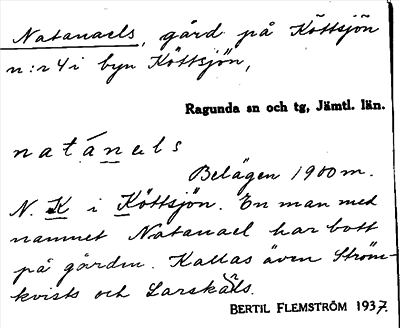 Natanaels, gård på Köttsjön
n:r 4 i byn Köttsjön,
Ragunda sn och tg, Jämtl. län.
natánəls
Belägen 1900 m.
N. K i Köttsjön. En man med
namnet Natanael har bott
på gården. Kallas även Ström-
kvists och Larskärs.
BERTIL FLEMSTRÖM 1937.